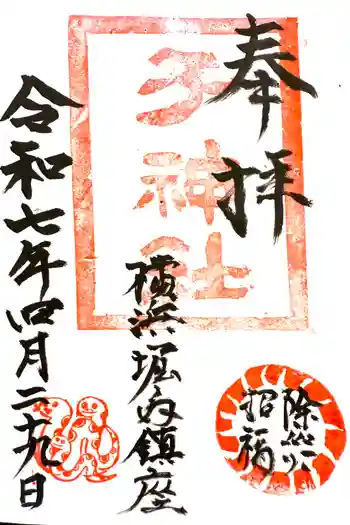 奉拝
子神社
除災
招福
横浜堀内鎮座
令和七年四月二十九日